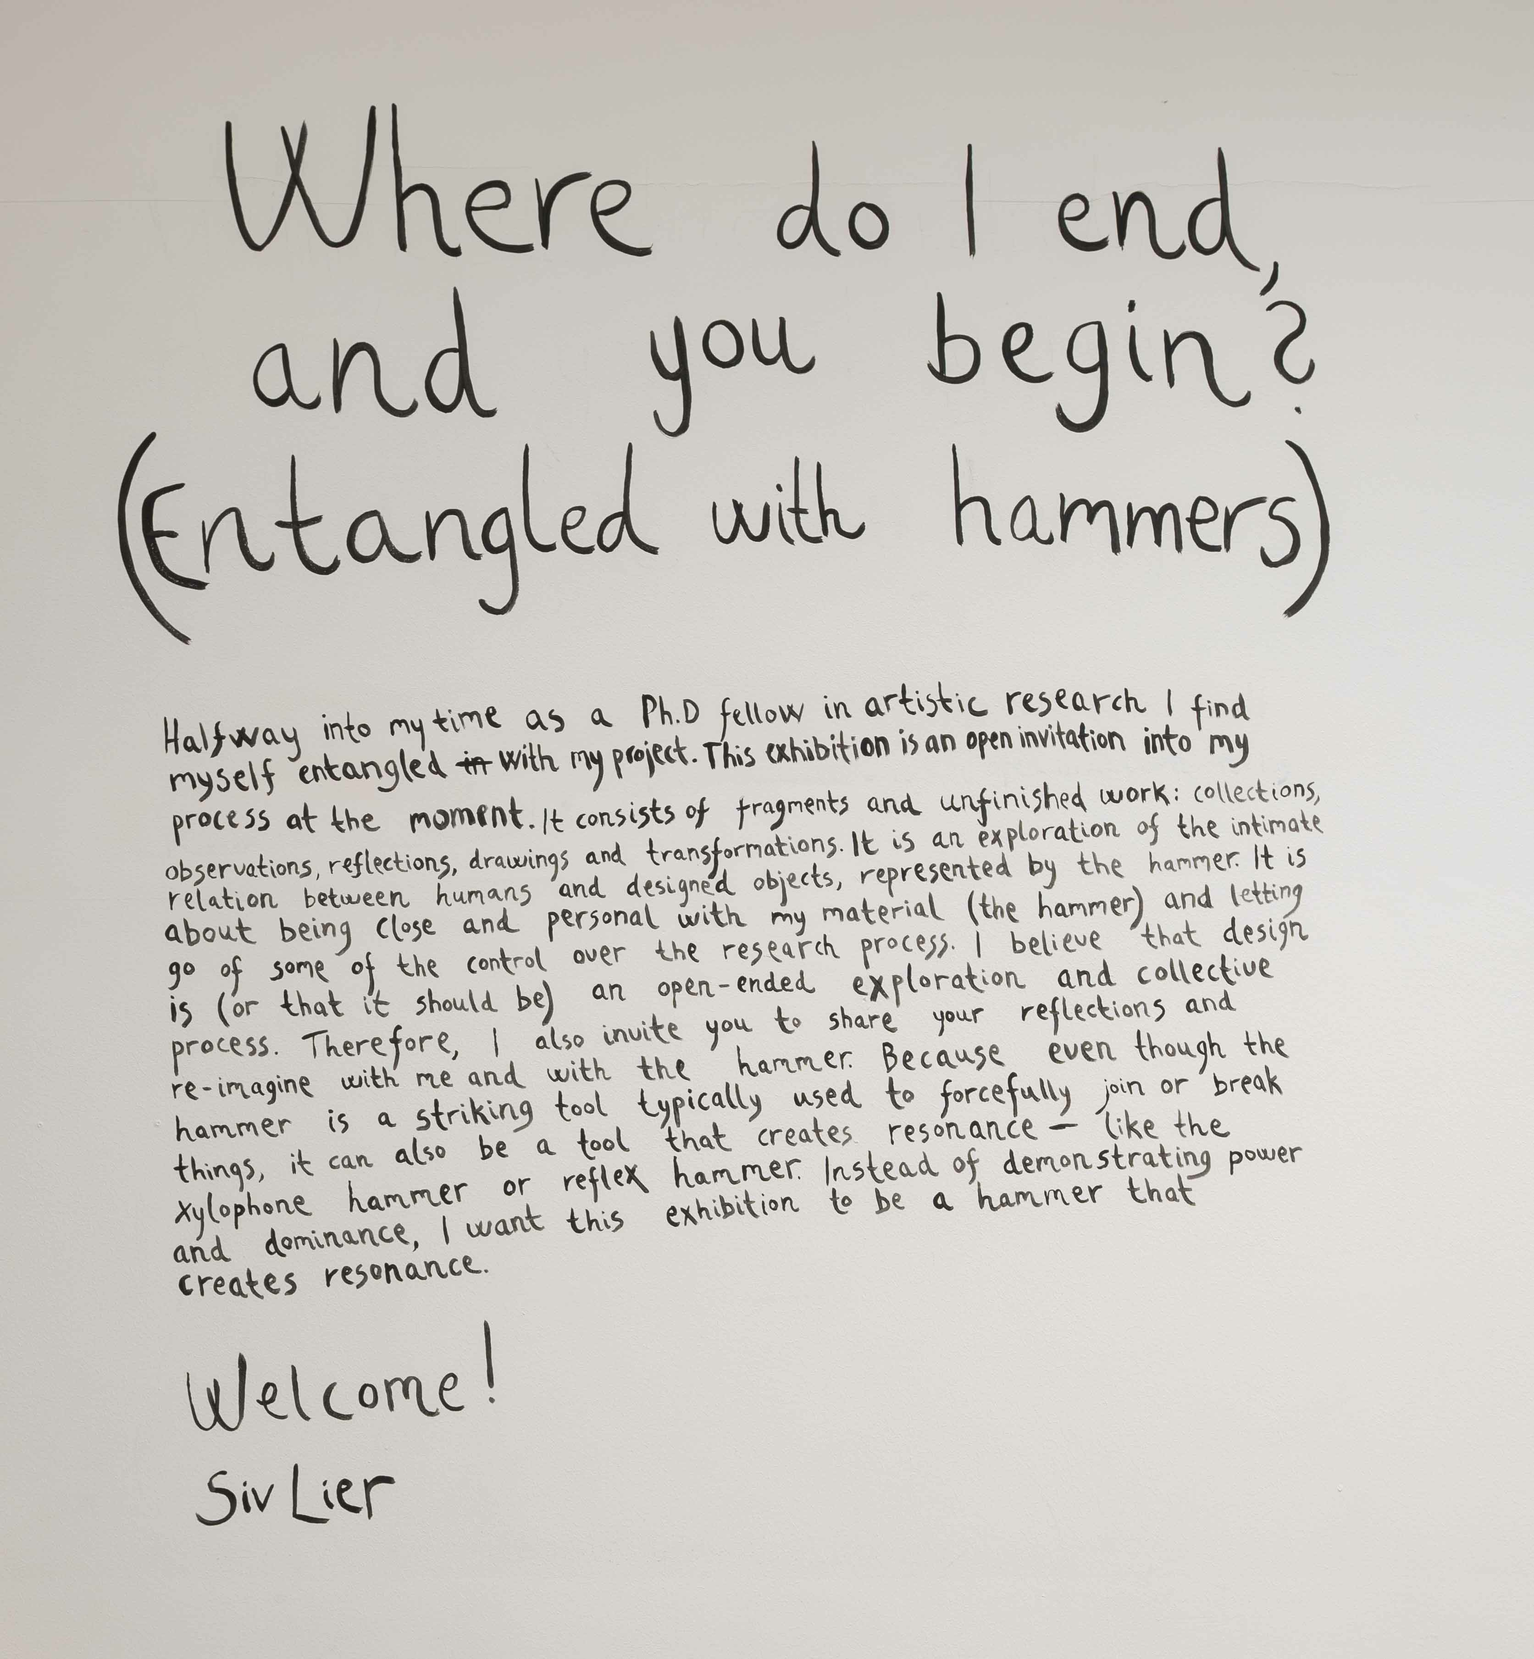 Where do I end,
and you begin?
(Entangled with hammers)
Halfway into my time as a Ph.D fellow in artistic research I find
myself entangled in with my project. This exhibition is an open invitation into my
process at the moment. It consists of fragments and unfinished work: collections,
observations, reflections, drawings and transformations. It is an exploration of the intimate
relation between humans and designed objects, represented by the hammer. It is
about being close and personal with my material (the hammer) and letting
go of some of the control over the research process. I believe that design
is (or that it should be) an open-ended exploration and collective
process. Therefore, I also invite you to share your reflections and
re-imagine with me and with the hammer. Because even though the
hammer is a striking tool typically used to forcefully join or break
things, it can also be a tool that creates resonance — like the
xylophone hammer or reflex hammer. Instead of demonstrating power
and dominance, I want this exhibition to be a hammer that
creates resonance.
Welcome!
Siv Lier